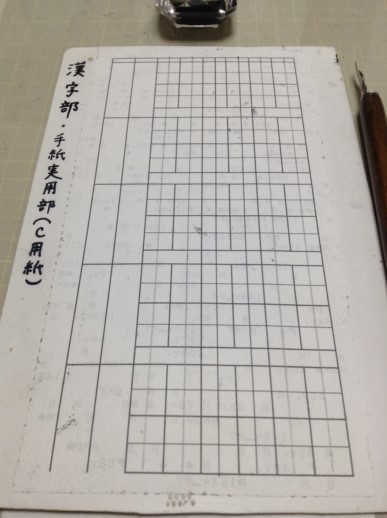 漢字部・手紙実用部(C用紙)